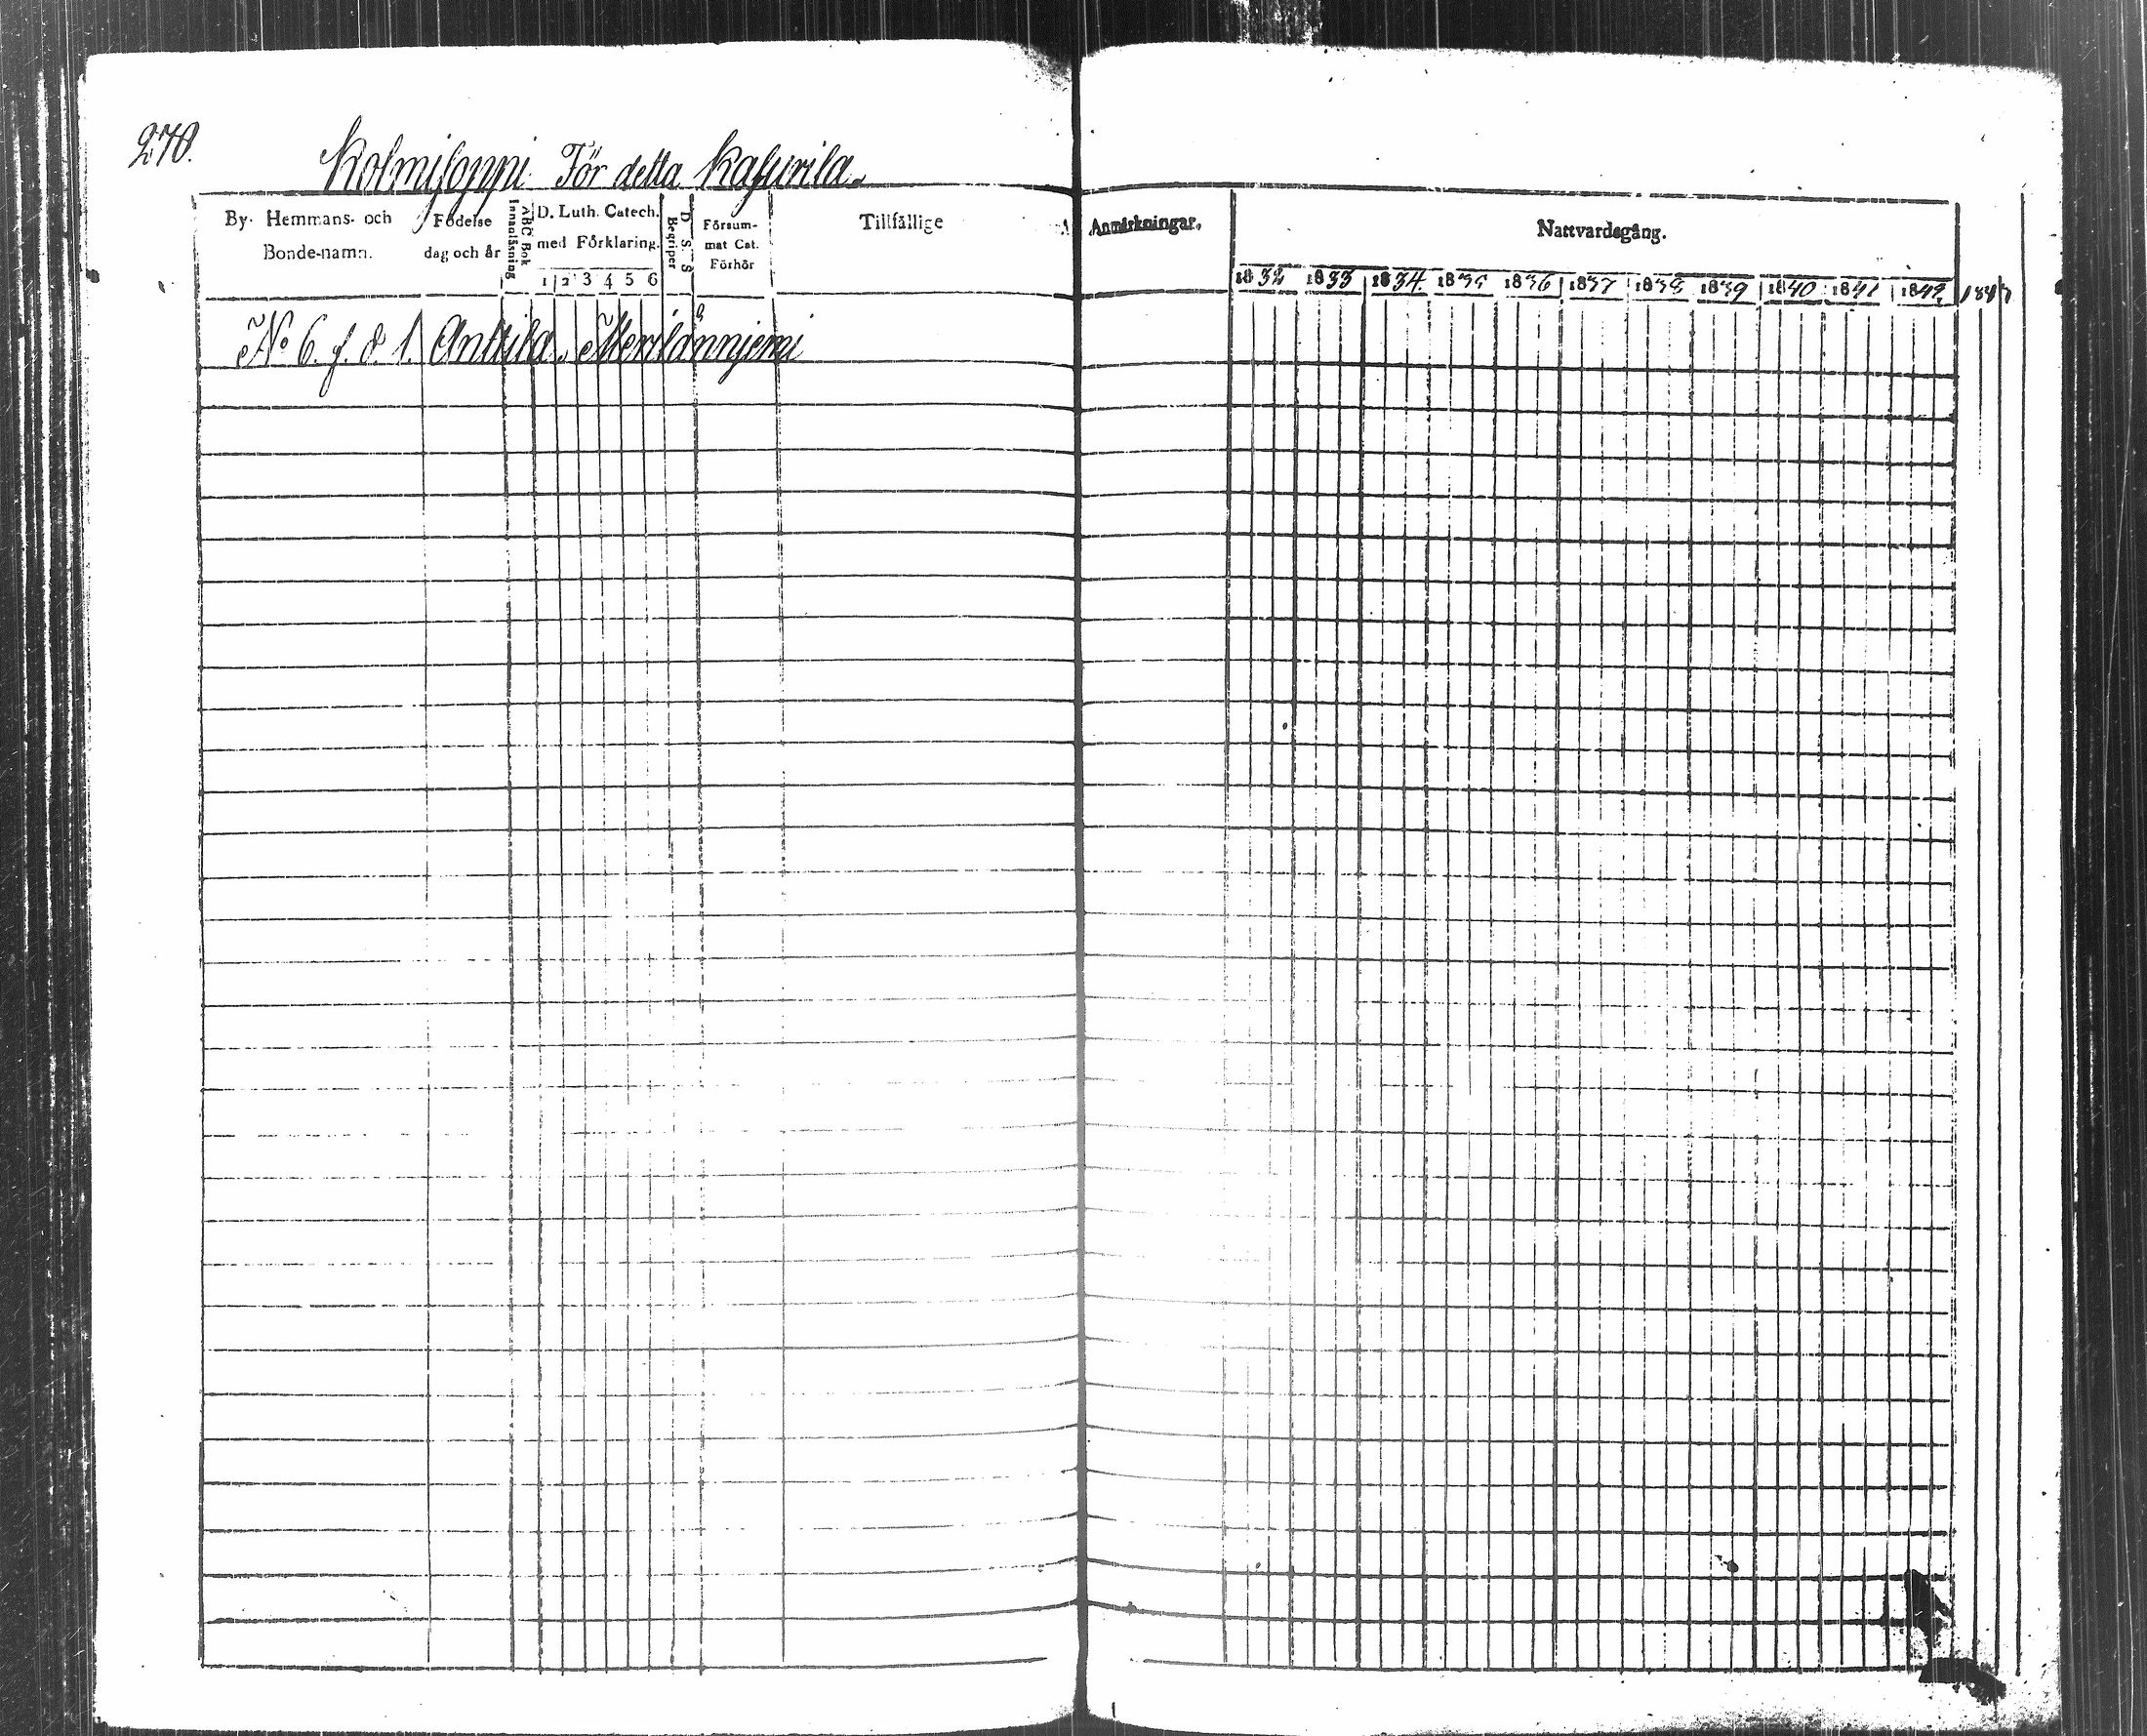 270.
Kolmisoppi För detta Kasurila.
By- Hemmans- och
Bonde-namn.
Födelse
dag och år
ABC Bok
Innanläsning
D. Luth. Catech.
med Förklaring.
1 2 3 4 5 6
D. S. S
Begriper
Försum-
mat Cat.
Förhör
Tillfällige
Anmärkningar.
Nattvardsgång.
1832 1833 1834. 1835 1836 1837 1838 1839 1840 1841 1842 1843
No 6. f. d 1. Anttila,